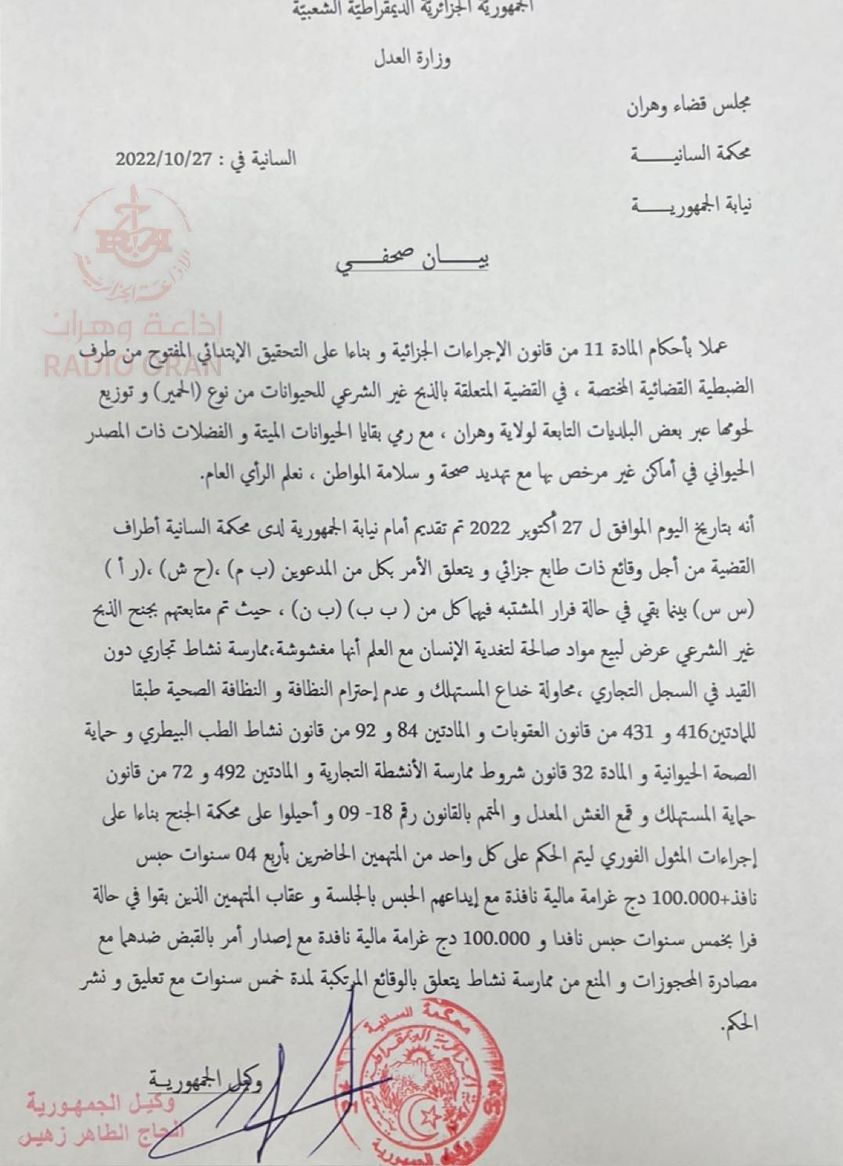 الجمهورية الجزائرية الديمقراطية الشعبية
وزارة العدل
مجلس قضاء وهران
محكمة السانيـــــة
السانية في : 2022/10/27
نيابة الجمهوريـــــة
بيـــــان صحفـــــي
إذاعة وهران
RADIO ORAN
عملا بأحكام المادة 11 من قانون الإجراءات الجزائية و بناءا على التحقيق الإبتدائي المفتوح من طرف
الضبطية القضائية المختصة ، في القضية المتعلقة بالذبح غير الشرعي للحيوانات من نوع (الحمير) و توزيع
لحومها عبر بعض البلديات التابعة لولاية وهران ، مع رمي بقايا الحيوانات الميتة و الفضلات ذات المصدر
الحيواني في أماكن غير مرخص بها مع تهديد صحة و سلامة المواطن ، نعلم الرأي العام.
أنه بتاريخ اليوم الموافق ل 27 أكتوبر 2022 تم تقديم أمام نيابة الجمهورية لدى محكمة السانية أطراف
القضية من أجل وقائع ذات طابع جزائي و يتعلق الأمر بكل من المدعوين (ب م) ،(ح ش) ،(ر أ )
(س س) بينما بقي في حالة فرار المشتبه فيهما كل من ( ب ب) (ب ن) ، حيث تم متابعتهم بجنح الذبح
غير الشرعي عرض لبيع مواد صالحة لتغدية الإنسان مع العلم أنها مغشوشة،ممارسة نشاط تجاري دون
القيد في السجل التجاري ،محاولة خداع المستهلك و عدم إحترام النظافة و النظافة الصحية طبقا
للمادتين416 و 431 من قانون العقوبات و المادتين 84 و 92 من قانون نشاط الطب البيطري و حماية
الصحة الحيوانية و المادة 32 قانون شروط ممارسة الأنشطة التجارية و المادتين 492 و 72 من قانون
حماية المستهلك و قمع الغش المعدل و المتمم بالقانون رقم 18- 09 و أحيلوا على محكمة الجنح بناءا على
إجراءات المثول الفوري ليتم الحكم على كل واحد من المتهمين الحاضرين بأربع 04 سنوات حبس
نافذ+100.000 دج غرامة مالية نافذة مع إيداعهم الحبس بالجلسة و عقاب المتهمين الذين بقوا في حالة
فرا بخمس سنوات حبس نافدا و 100.000 دج غرامة مالية نافدة مع إصدار أمر بالقبض ضدهما مع
مصادرة المحجوزات و المنع من ممارسة نشاط يتعلق بالوقائع المرتكبة لمدة خمس سنوات مع تعليق و نشر
الحكم.
محكمة السانية
وكيل الجمهوريـة
وكيل الجمهورية
الحاج الطاهر زهير
وكيل الجمهورية